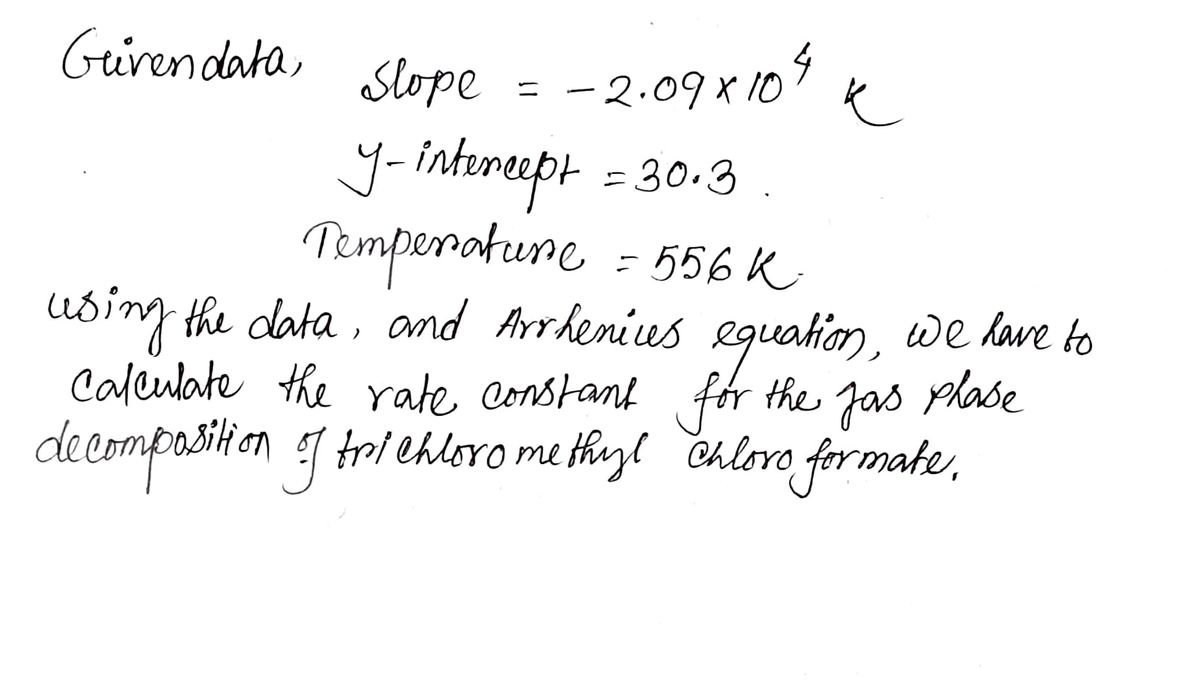 Given data, Slope = -2.09 x 10⁴ K
y-intercept = 30.3.
Temperature = 556 K.
using the data, and Arrhenius equation, we have to
Calculate the rate constant for the gas phase
decomposition of trichloromethyl Chloroformate.